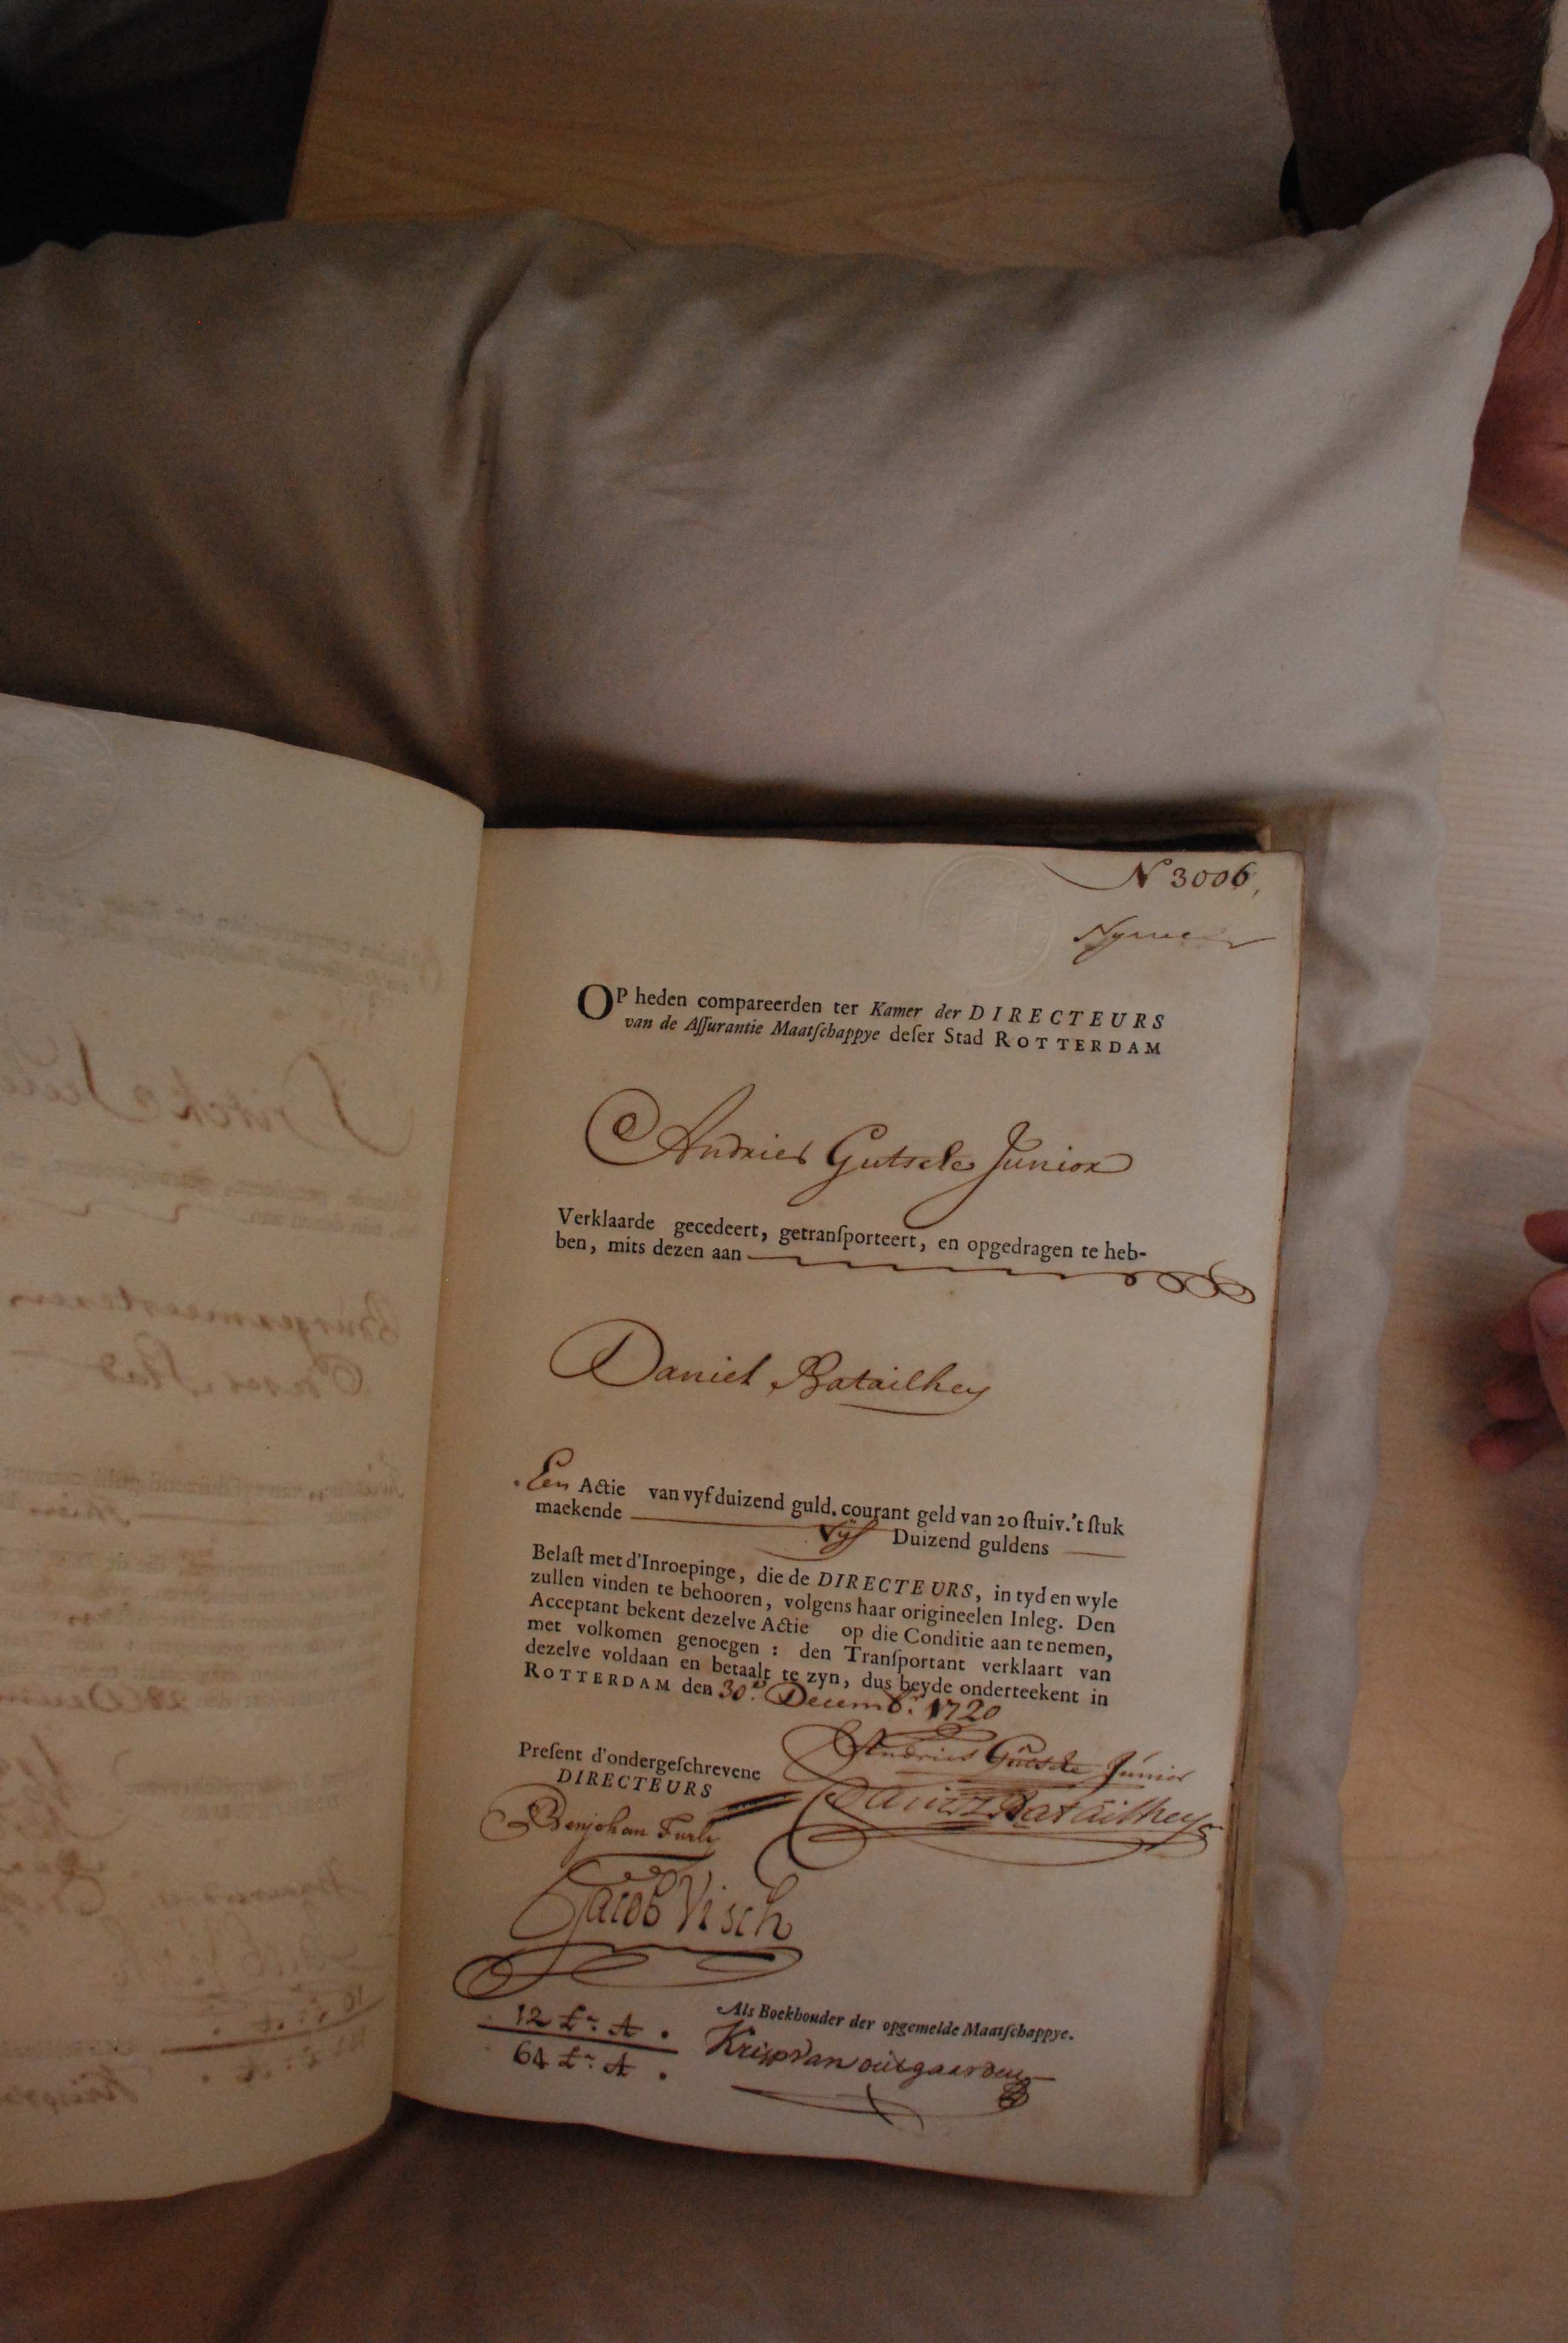 N 3006,
OP heden compareerden ter Kamer der DIRECTEURS
van de Aſſurantie Maatſchappye deſer Stad ROTTERDAM
Andries Gutsche Junior
Verklaarde gecedeert, getranſporteert, en opgedragen te heb-
ben, mits dezen aan
Daniel Batailhey
Een Actie van vyfduizend guld. courant geld van 20 ſtuiv.'t ſtuk
maekende Vyf Duizend guldens
Belaſt met d'Inroepinge, die de DIRECTEURS, in tyd en wyle
zullen vinden te behooren, volgens haar origineelen Inleg. Den
Acceptant bekent dezelve Actie op die Conditie aan te nemen,
met volkomen genoegen : den Tranſportant verklaart van
dezelve voldaan en betaalt te zyn, dus beyde onderteekent in
ROTTERDAM den 30.e Decemb.r 1720
Andries Gutsche Junior
Preſent d'ondergeſchrevene
DIRECTEURS
Daniel Batailhey
Benjohan Furly
Jacob Visch
Als Boekhouder der opgemelde Maatſchappye.
12 Lr. A.
64 Lr. A.